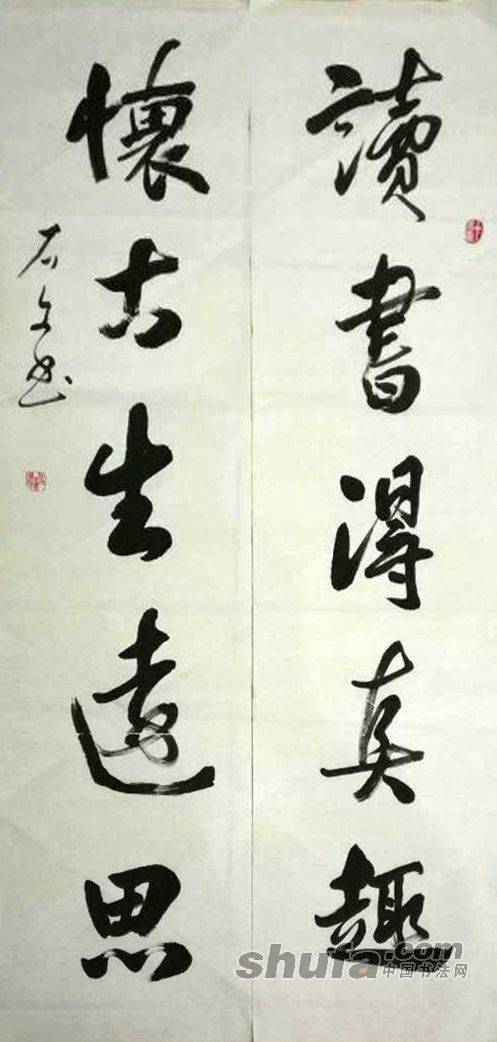 讀書得真趣
懷古生遠思
石文书
shufa.com
中国书法网